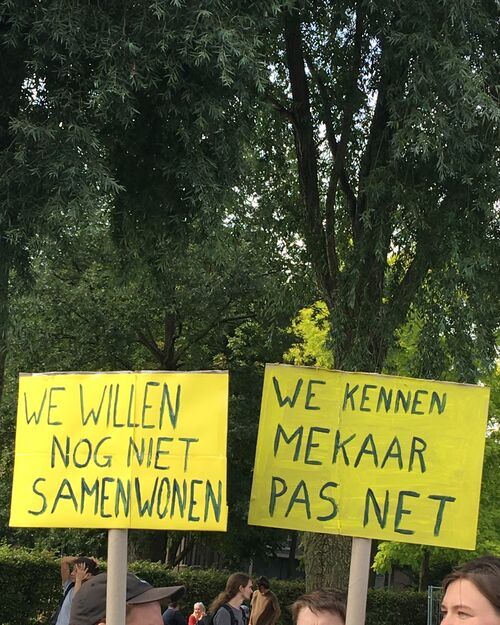 WE WILLEN
NOG NIET
SAMENWONEN
WE KENNEN
MEKAAR
PAS NET